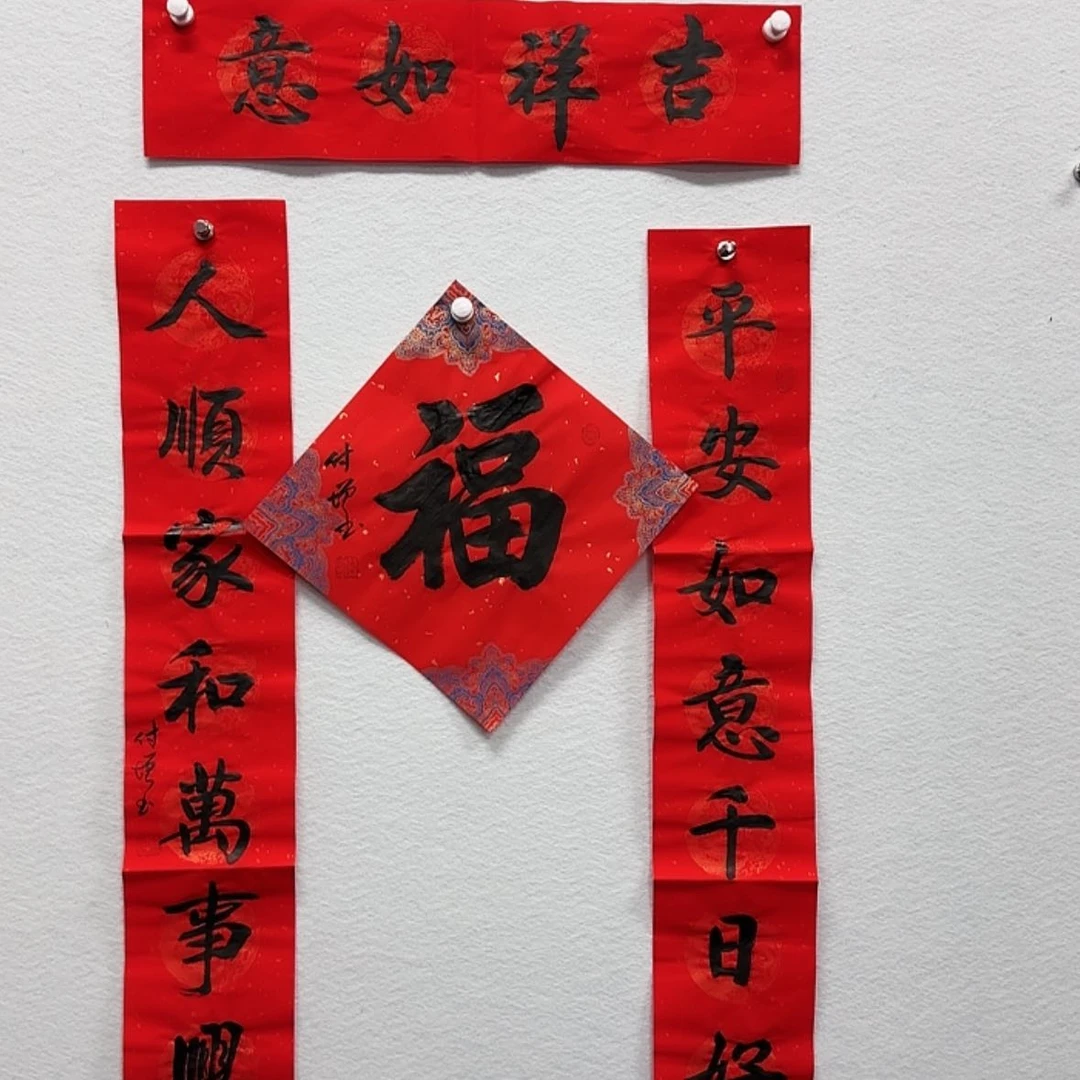 吉祥如意
平安如意千日好
福
付增
人順家和萬事興
付增